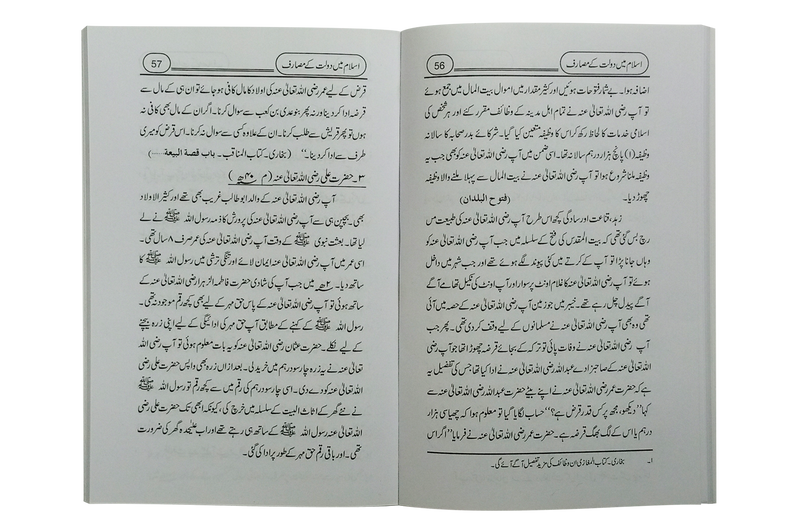 56
اسلام میں دولت کے مصارف
اضافہ ہوا۔ بے شمار فتوحات ہوئیں اور کثیر مقدار میں اموال بیت المال میں جمع ہوئے
تو آپ رضی اللہ تعالیٰ عنہ نے تمام اہل مدینہ کے وظائف مقرر کئے اور ہر شخص کی
اسلامی خدمات کا لحاظ رکھ کر اس کا وظیفہ متعین کیا گیا۔ شرکائے بدر صحابہ کا سالانہ
وظیفہ (۱) پانچ ہزار درہم سالانہ تھا۔ اسی ضمن میں آپ رضی اللہ تعالیٰ عنہ کو بھی جب یہ
وظیفہ ملنا شروع ہوا تو آپ رضی اللہ تعالیٰ عنہ نے بیت المال سے پہلا ملنے والا وظیفہ
چھوڑ دیا۔ (فتوح البلدان)
زہد، قناعت اور سادگی کچھ اس طرح آپ رضی اللہ تعالیٰ عنہ کی طبیعت میں
رچ بس گئی تھی کہ بیت المقدس کی فتح کے سلسلہ میں جب آپ رضی اللہ تعالیٰ عنہ کو
وہاں جانا پڑا تو آپ کے کرتے میں کئی پیوند لگے ہوئے تھے اور جب شہر میں داخل
ہوئے تو آپ رضی اللہ تعالیٰ عنہ کا غلام اونٹ پر سوار اور آپ اونٹ کی نکیل تھامے آگے
آگے پیدل چل رہے تھے۔ خیبر میں جو زمین آپ رضی اللہ تعالیٰ عنہ کے حصہ میں آئی
تھی وہ بھی آپ رضی اللہ تعالیٰ عنہ نے مسلمانوں کے لیے وقف کر دی تھی۔ پھر جب
آپ رضی اللہ تعالیٰ عنہ نے وفات پائی تو ترکہ کے بجائے قرضہ چھوڑا تھا جو آپ رضی
اللہ تعالیٰ عنہ کے صاحبزادے عبداللہ رضی اللہ تعالیٰ عنہ نے ادا کیا تھا جس کی تفصیل یہ
ہے کہ حضرت عمر رضی اللہ تعالیٰ عنہ نے اپنے بیٹے حضرت عبداللہ رضی اللہ تعالیٰ عنہ سے
کہا ”دیکھو، مجھ پر کس قدر قرض ہے؟“ حساب لگایا گیا تو معلوم ہوا کہ چھیاسی ہزار
درہم یا اس کے لگ بھگ قرضہ ہے۔ حضرت عمر رضی اللہ تعالیٰ عنہ نے فرمایا ”اگر اس
۱۔ بخاری۔ کتاب المغازی ان وظائف کی مزید تفصیل آگے آئے گی۔
57
اسلام میں دولت کے مصارف
قرض کے لیے عمر رضی اللہ تعالیٰ عنہ کی اولاد کا مال کافی ہو جائے تو ان ہی کے مال سے
قرضہ ادا کر دینا ورنہ پھر بنو عدی بن کعب سے سوال کرنا۔ اگر ان کے مال بھی کافی نہ
ہوں تو پھر قریش سے طلب کرنا۔ ان کے علاوہ کسی سے سوال نہ کرنا۔ اس قرض کو میری
طرف سے ادا کر دینا۔“ (بخاری۔ کتاب المناقب۔ باب قصة البیعة ....)
۳۔ حضرت علی رضی اللہ تعالیٰ عنہ (م ۴۰ھ)
آپ رضی اللہ تعالیٰ عنہ کے والد ابوطالب غریب بھی تھے اور کثیر الاولاد
بھی۔ بچپن ہی سے آپ رضی اللہ تعالیٰ عنہ کی پرورش کا ذمہ رسول اللہ ﷺ نے لے
لیا تھا۔ بعثت نبوی ﷺ کے وقت آپ رضی اللہ تعالیٰ عنہ کی عمر صرف ۸ سال تھی۔
اسی عمر میں آپ رضی اللہ تعالیٰ عنہ ایمان لائے اور تنگی ترشی میں رسول اللہ ﷺ کا
ساتھ دیا۔ ۲ھ میں جب آپ کی شادی حضرت فاطمہ الزہرا رضی اللہ تعالیٰ عنہ کے
ساتھ ہوئی تو آپ رضی اللہ تعالیٰ عنہ کے پاس حق مہر کے لیے بھی کچھ رقم موجود نہ تھی۔
رسول اللہ ﷺ کے کہنے کے مطابق آپ حق مہر کی ادائیگی کے لیے اپنی زرہ بیچنے
کے لیے نکلے۔ حضرت عثمان رضی اللہ تعالیٰ عنہ کو یہ بات معلوم ہوئی تو آپ رضی اللہ
تعالیٰ عنہ نے یہ زرہ چار سو درہم میں خرید لی۔ بعد ازاں زرہ بھی واپس حضرت علی رضی
اللہ تعالیٰ عنہ کو دے دی۔ اسی چار سو درہم کی رقم میں سے کچھ رقم تو رسول اللہ ﷺ
نے نئے گھر کے اثاث البیت کے سلسلہ میں خرچ کی، کیونکہ ابھی تک حضرت علی رضی
اللہ تعالیٰ عنہ رسول اللہ ﷺ کے ساتھ ہی رہتے تھے اور اب علیٰحدہ گھر کی ضرورت
تھی۔ اور باقی رقم حق مہر کے طور پر ادا کی گئی۔